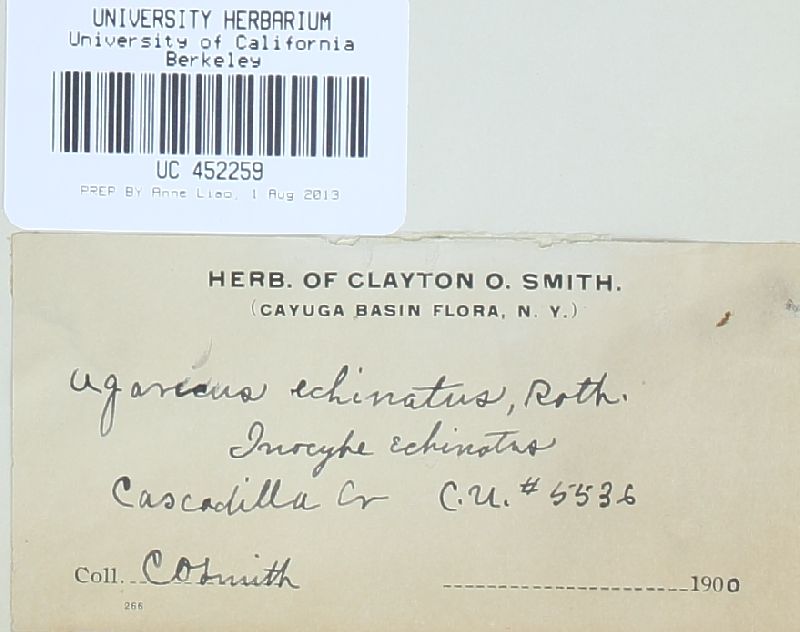 UNIVERSITY HERBARIUM
University of California
Berkeley
UC 452259
PREP BY Anne Liao, 1 Aug 2013
HERB. OF CLAYTON O. SMITH.
(CAYUGA BASIN FLORA, N. Y.)
Agaricus echinatus, Roth.
Inocybe echinatus
Cascadilla Cr C.U. # 5536
Coll. C O Smith 1900
266